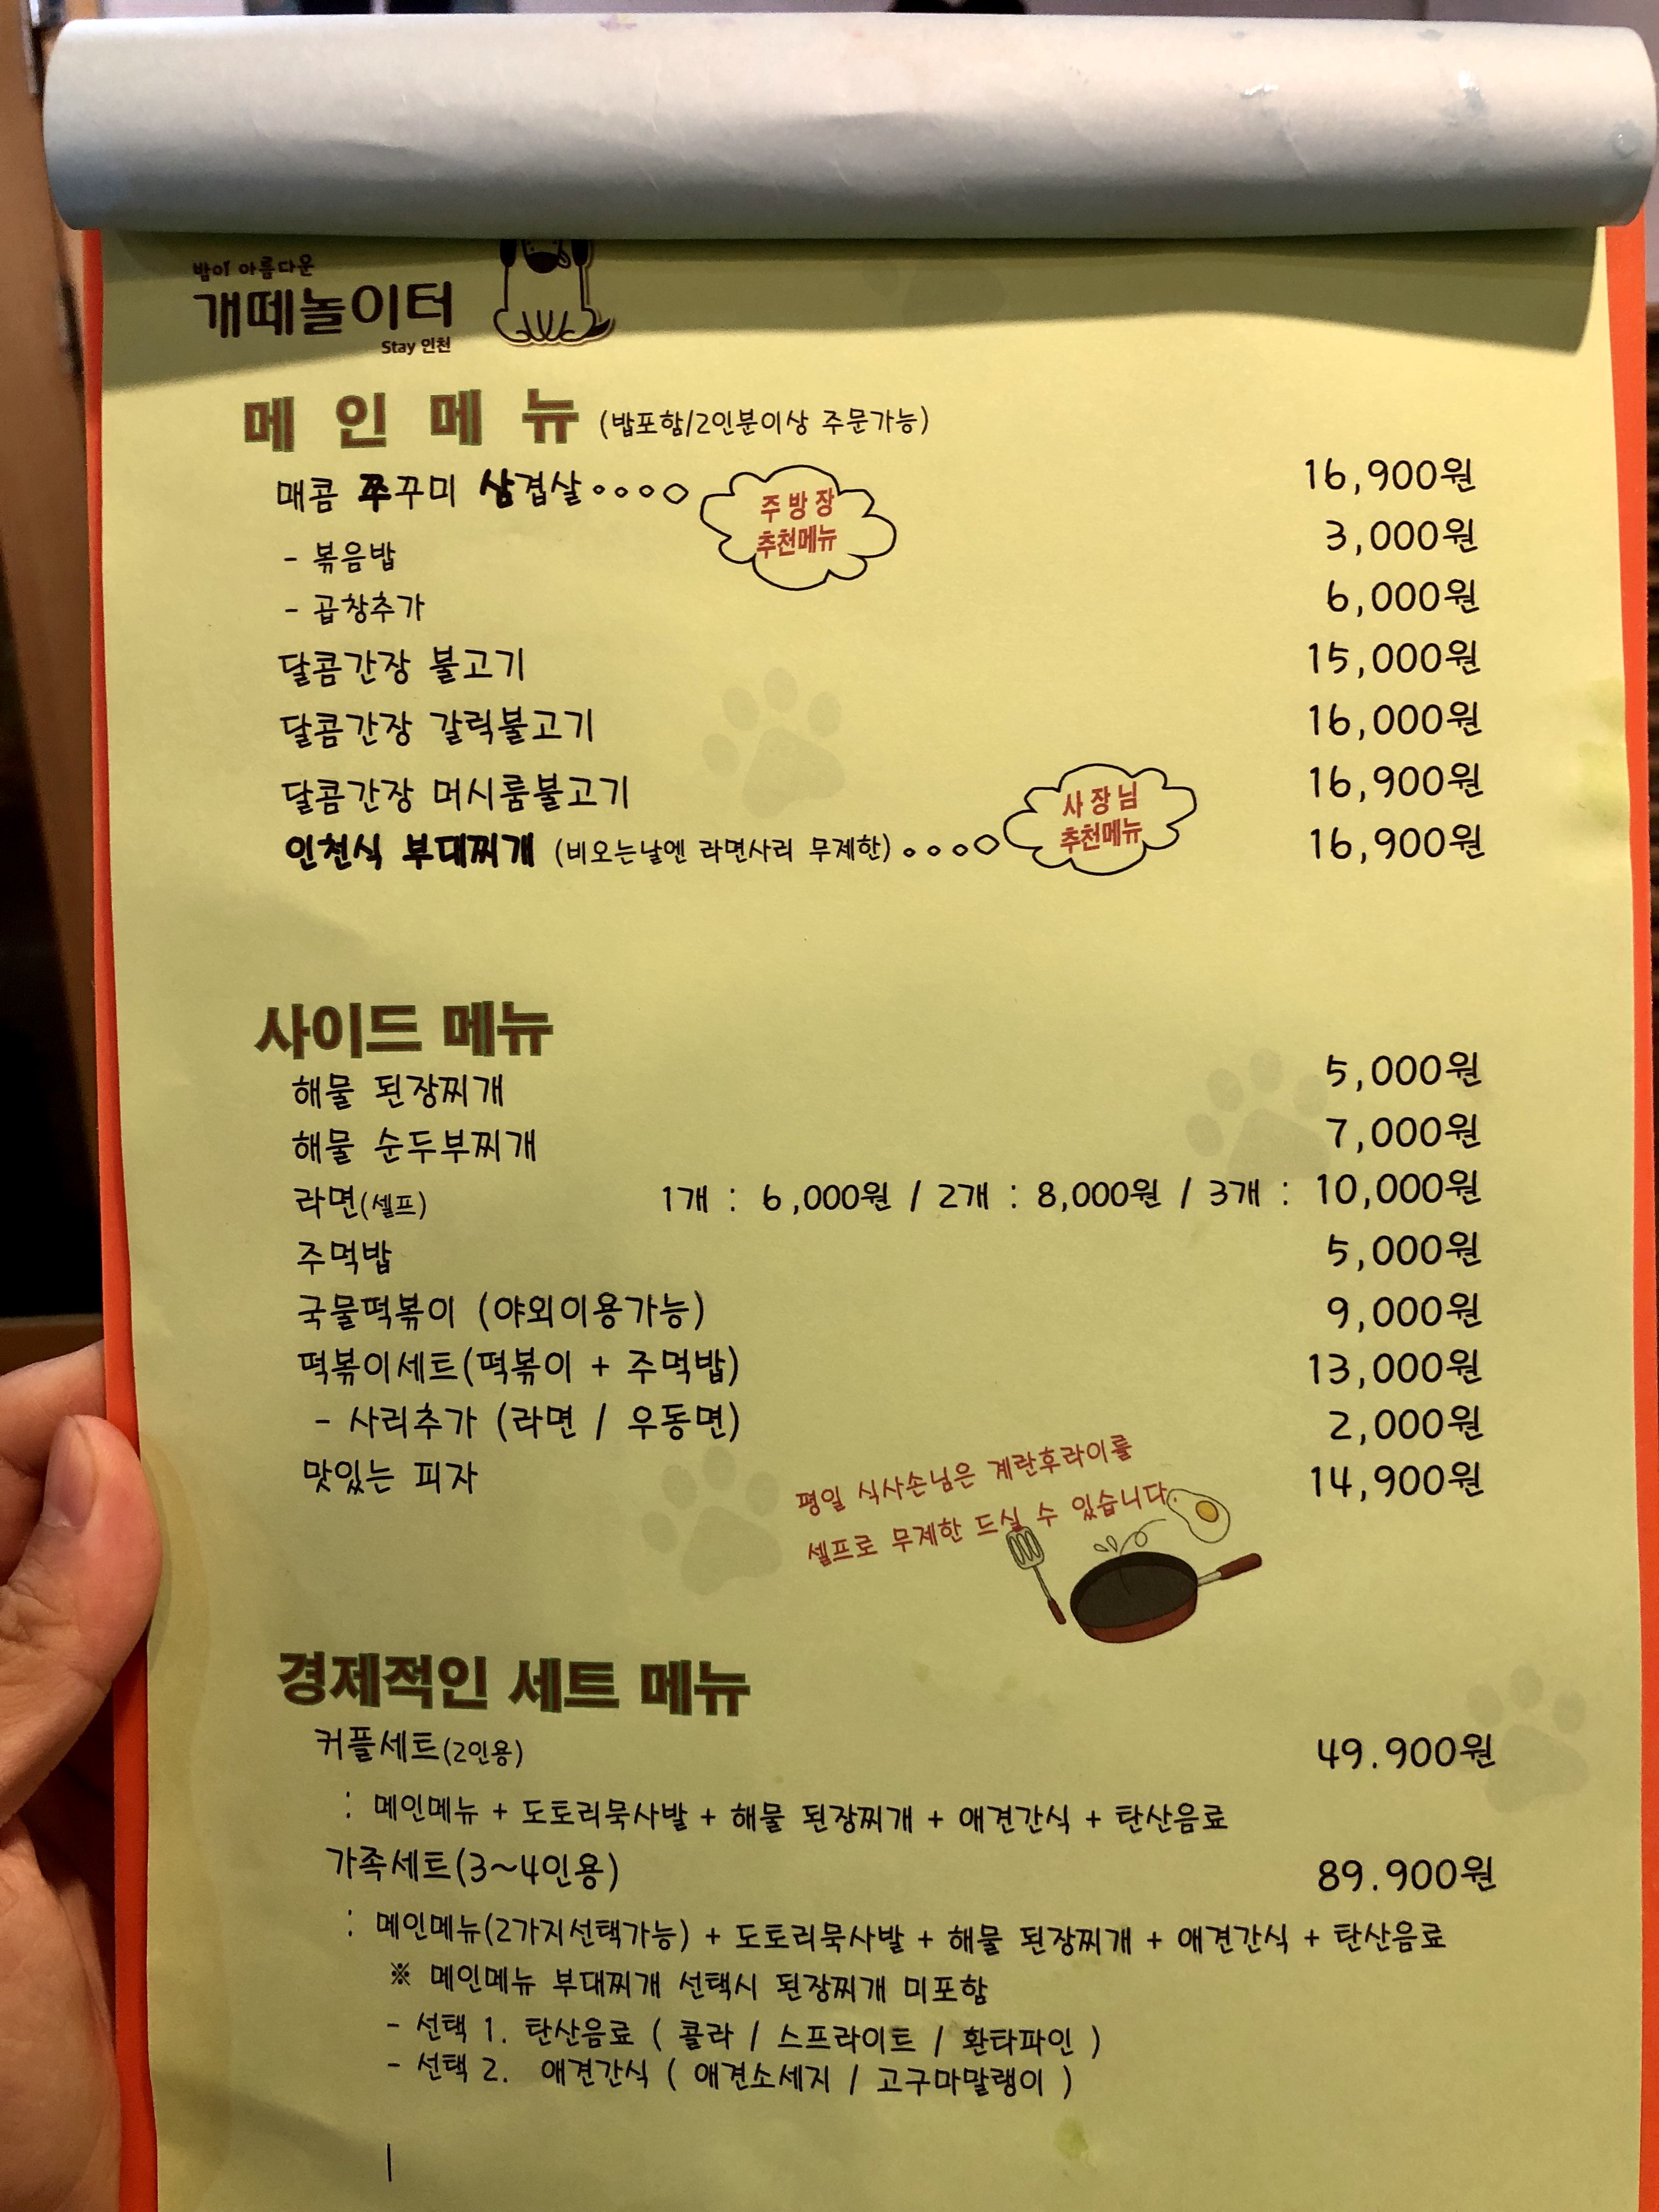 밤이 아름다운
개떼놀이터
Stay 인천
메 인 메 뉴 (밥포함/2인분이상 주문가능)
매콤 쭈꾸미 삼겹살 16,900원
주방장
추천메뉴
- 볶음밥 3,000원
- 곱창추가 6,000원
달콤간장 불고기 15,000원
달콤간장 갈릭불고기 16,000원
달콤간장 머시룸불고기 16,900원
사장님
추천메뉴
인천식 부대찌개 (비오는날엔 라면사리 무제한) 16,900원
사이드 메뉴
해물 된장찌개 5,000원
해물 순두부찌개 7,000원
라면(셀프) 1개 : 6,000원 / 2개 : 8,000원 / 3개 : 10,000원
주먹밥 5,000원
국물떡볶이 (야외이용가능) 9,000원
떡볶이세트(떡볶이 + 주먹밥) 13,000원
- 사리추가 (라면 / 우동면) 2,000원
맛있는 피자 14,900원
평일 식사손님은 계란후라이를
셀프로 무제한 드실 수 있습니다
경제적인 세트 메뉴
커플세트(2인용) 49.900원
: 메인메뉴 + 도토리묵사발 + 해물 된장찌개 + 애견간식 + 탄산음료
가족세트(3~4인용) 89.900원
: 메인메뉴(2가지선택가능) + 도토리묵사발 + 해물 된장찌개 + 애견간식 + 탄산음료
※ 메인메뉴 부대찌개 선택시 된장찌개 미포함
- 선택 1. 탄산음료 ( 콜라 / 스프라이트 / 환타파인 )
- 선택 2. 애견간식 ( 애견소세지 / 고구마말랭이 )